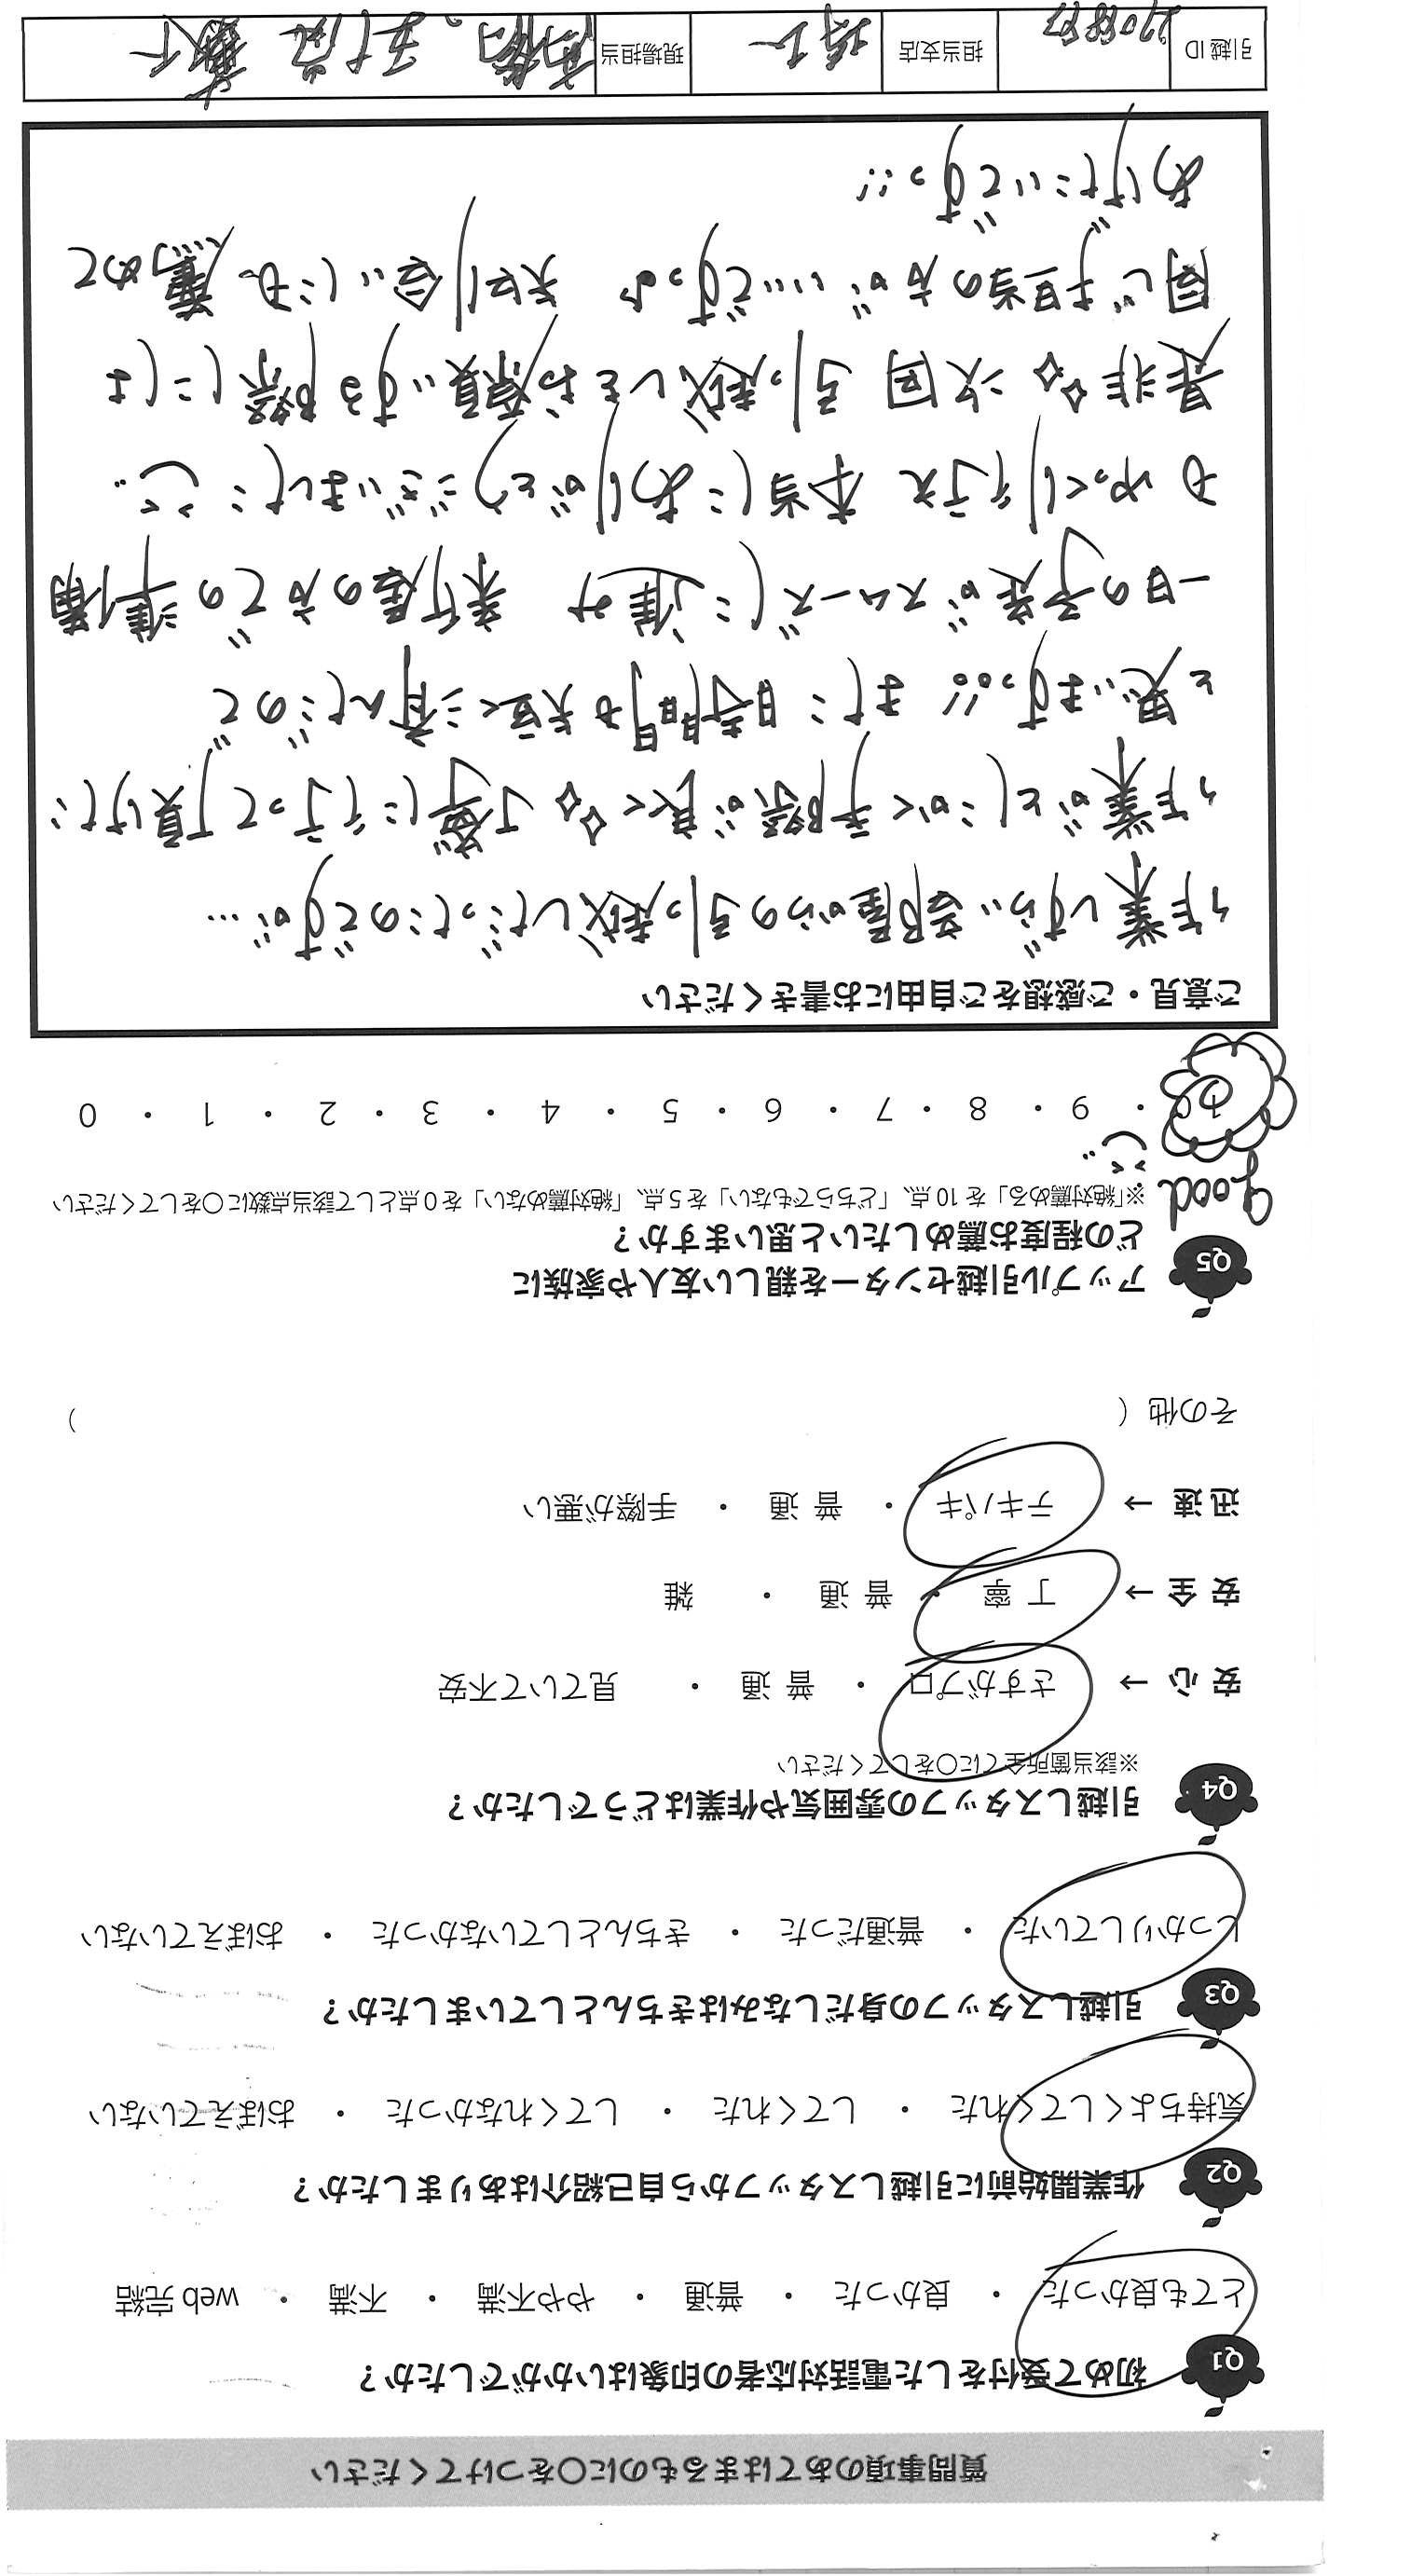 質問事項のあてはまるものに〇をつけてください
Q1 初めて受付をした電話対応者の印象はいかがでしたか?
とても良かった ・ 良かった ・ 普通 ・ やや不満 ・ 不満 ・ web 完結
Q2 作業開始前に引越しスタッフから自己紹介はありましたか?
気持ちよくしてくれた ・ してくれた ・ してくれなかった ・ おぼえていない
Q3 引越しスタッフの身だしなみはきちんとしていましたか?
しっかりしていた ・ 普通だった ・ きちんとしていなかった ・ おぼえていない
Q4 引越しスタッフの雰囲気や作業はどうでしたか?
※該当箇所全てに〇をしてください
安 心 → さすがプロ ・ 普 通 ・ 見ていて不安
安 全 → 丁 寧 ・ 普 通 ・ 雑
迅 速 → テキパキ ・ 普 通 ・ 手際が悪い
その他 ( )
Q5 アップル引越センターを親しい友人や家族に
どの程度お薦めしたいと思いますか?
good ※「絶対薦める」を 10 点、「どちらでもない」を 5 点、「絶対薦めない」を 0 点として該当点数に〇をしてください
10 ・ 9 ・ 8 ・ 7 ・ 6 ・ 5 ・ 4 ・ 3 ・ 2 ・ 1 ・ 0
ご意見・ご感想をご自由にお書きください
作業しずらい部屋からの引っ越しだったのですが…
作業がとにかく手際が良く。丁寧に行って頂けた
と思いますっ!! また時間も短く済んだので
一日の予定がスムーズに進み 新居の方での準備
もゆっくり行え 本当にありがとうございました
是非。次回引っ越しをお願いする際には
同じ担当の方がいいですっ♪ 知り合いにも、薦めて
あげたいですっ!!
引越 ID 担当支店 埼玉 現場担当 高橋、